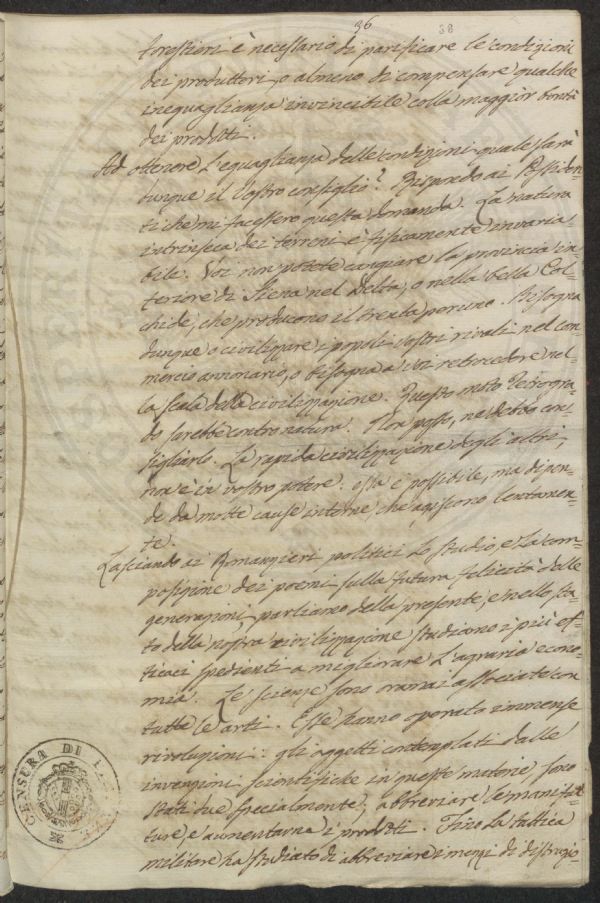 36
38
forestieri è necessario di parificare le condizioni
dei produttori, o almeno di compensare qualche
ineguaglianza invincibile colla maggior bontà
dei prodotti.
Ad ottenere l'eguaglianza delle condizioni quale sarà
dunque il vostro consiglio? Rispondo ai Possiden=
ti che mi facessero questa domanda. La natura
intrinseca dei terreni è fisicamente invaria
bile. Voi non potete cangiare la provincia in=
feriore di Siena nel Delta, o nella bella Col=
chide, che producono il trenta per uno. Bisogna
dunque o civilizzare i popoli vostri rivali nel com=
mercio annonario, o bisogna a voi retrocedere nel=
la scala della civilizzazione. Questo moto retrogra=
do sarebbe contro natura. Non posso, nè debbo con=
sigliarlo. La rapida civilizzazione degli altri,
non è in vostro potere: essa è possibile, ma dipen=
de da molte cause interne che agiscono lentamen=
te.
Lasciando ai Romanzieri politici lo studio, e la com=
posizione dei poemi sulla futura felicità delle
generazioni parliamo della presente, e nello sta=
to della nostra civilizzazione studiamo i più ef=
ficaci spedienti a migliorare l'agraria econo=
mia. Le scienze sono oramai associate con
tutte le arti. Esse hanno operato immense
rivoluzioni: gli oggetti contemplati dalle
invenzioni scientifiche in queste materie sono
stati due specialmente, abbreviare le manifat
ture, e aumentarne i prodotti. Fino la tattica
militare ha studiato di abbreviare i mezzi di distruzio=
CENSURA DI